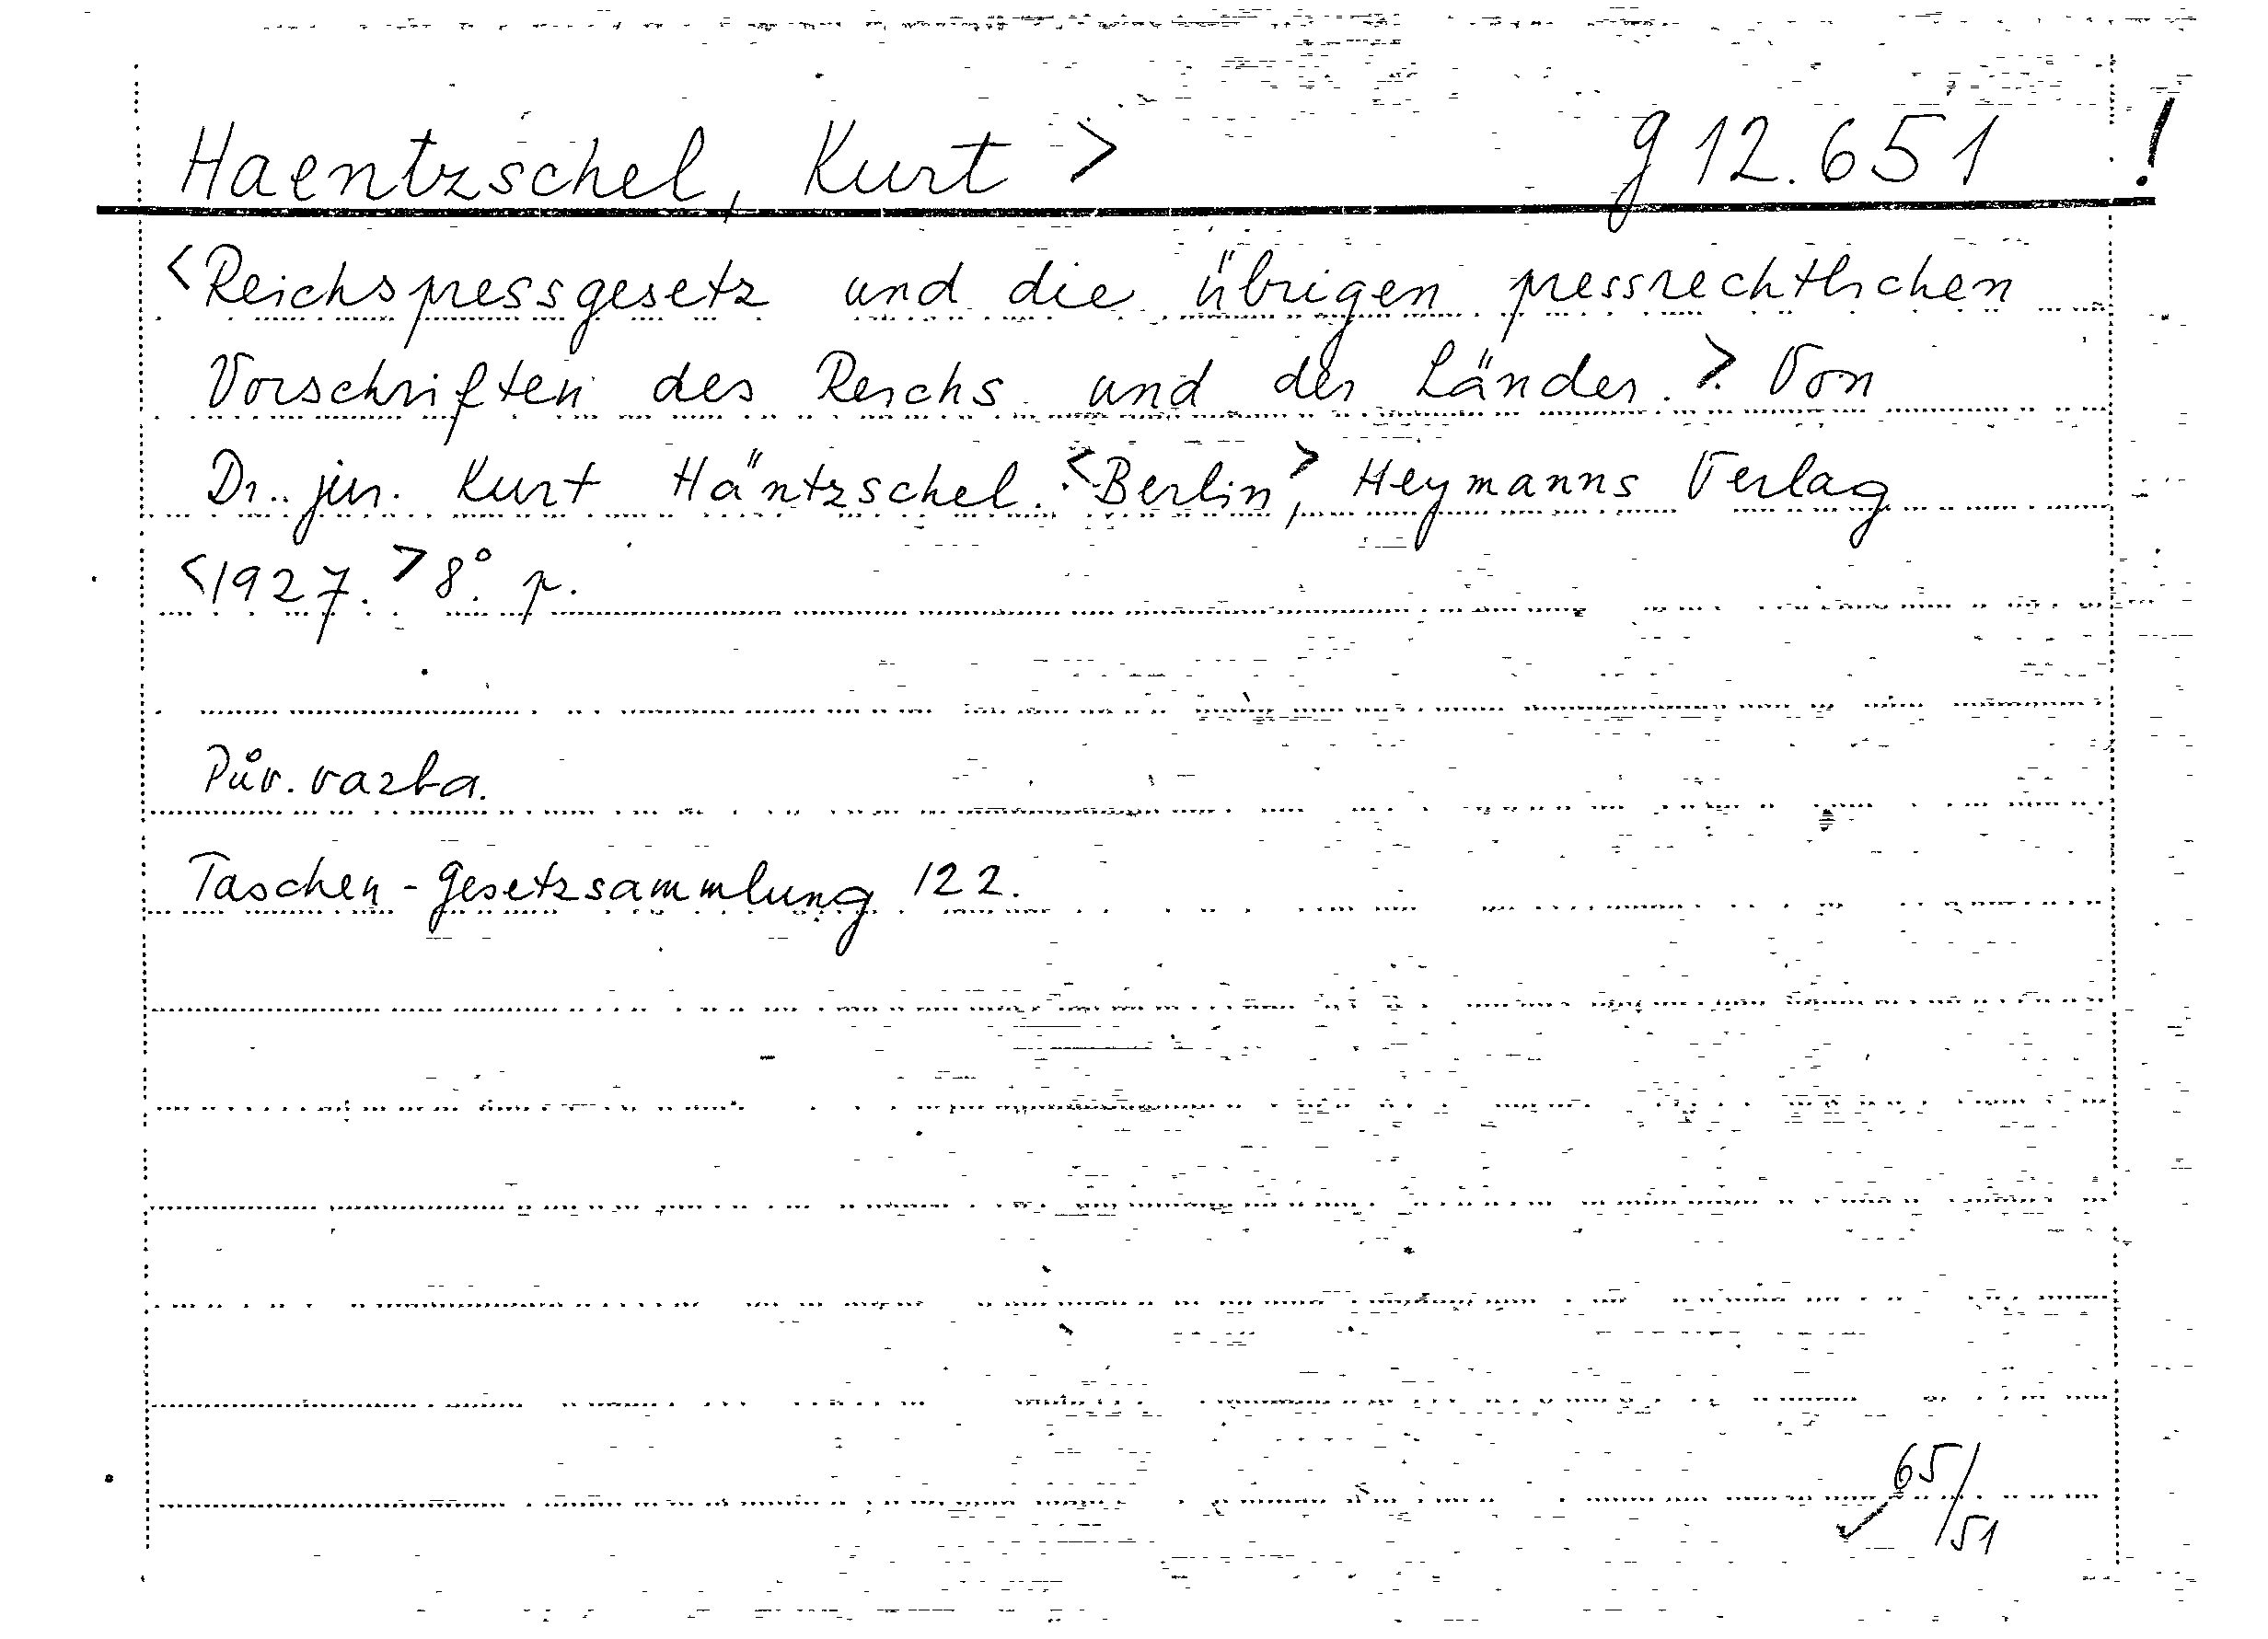 Haentzschel, Kurt > g 12.651 !
<Reichspressgesetz und die übrigen pressrechtlichen
Vorschriften des Reichs und der Länder.> Von
Dr. jur. Kurt Häntzschel. <Berlin>, Heymanns Verlag
<1927.> 8°. p.
Pův. vazba.
Taschen-Gesetzsammlung 122.
65/51